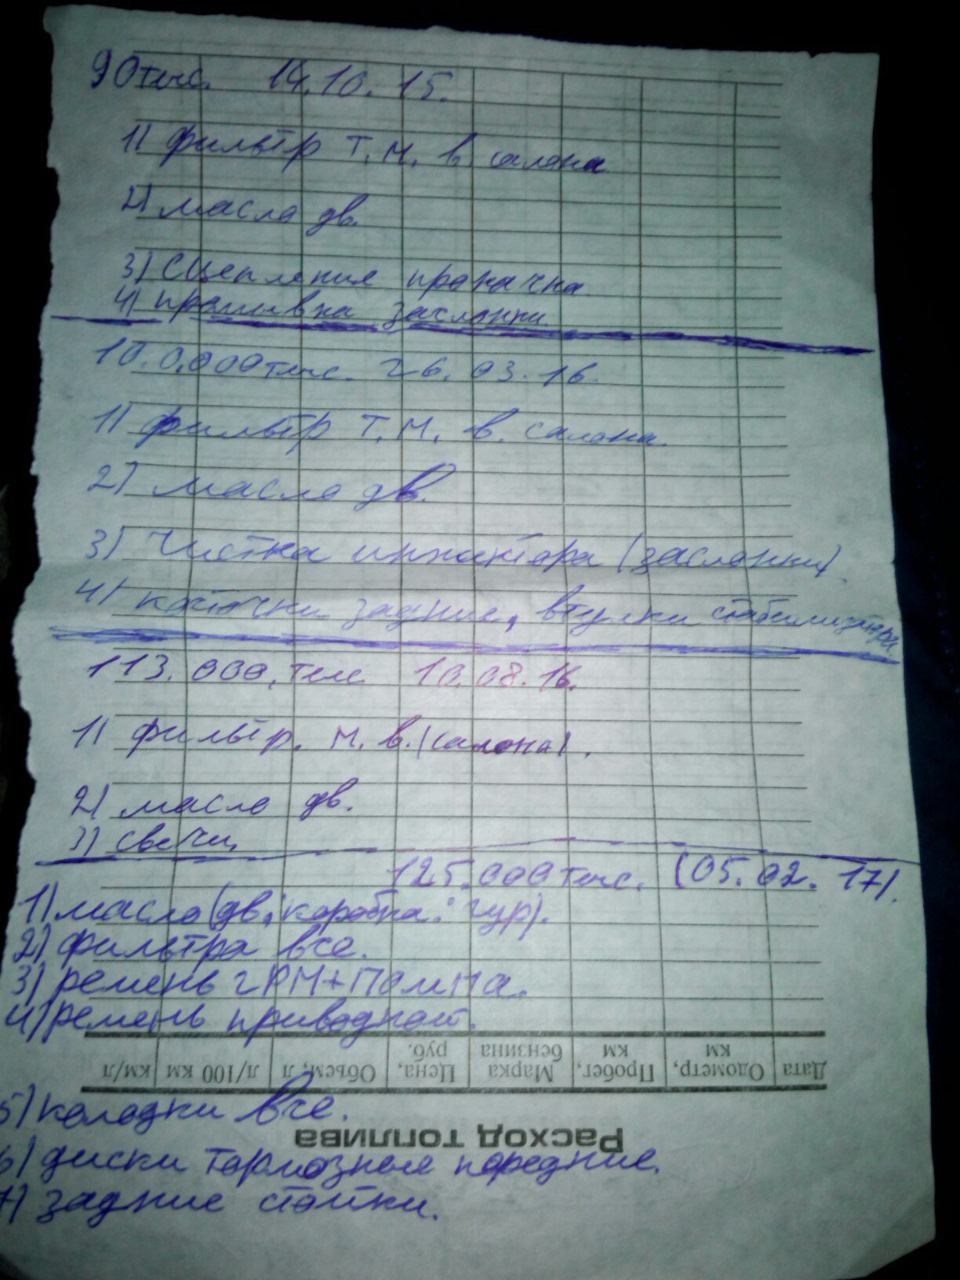 90тыс. 14.10.15.
1) фильтр Т.М. в салона
2) масло дв.
3) Сцепление прокачка
4) прошивка заслонки
10.0,000тыс. 26.03.16.
1) фильтр Т.М. в. салона.
2) масло дв.
3) Чистка инжектора (заслонки).
4) колодки задние, втулки стабилизатора
113.000.тыс 10.08.16.
1) фильтр. М. в. (салона).
2) масло дв.
3) свечи
125.000тыс. (05.02.17).
1) масло (дв, коробка. гур).
2) фильтра все.
3) ремень ГРМ+Помпа.
4) ремень приводной.
Дата Одометр, км Пробег, км Марка бензина Цена, руб. Объем, л л/100 км км/л
5) колодки все.
Расход топлива
6) диски тормозные передние.
7) задние стойки.